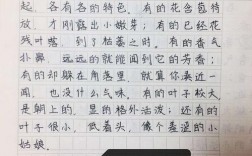 起，各有各的特色，有的花含苞待
放，才刚露出小嫩芽；有的已经花
残叶落，到了枯萎之时。有的香气
扑鼻，远远的就能闻到它的芳香；
有的却躲在角落里，就算你凑近一
闻，也没什么气味。有的叶子较大，
是朝上的，显的格外活泼；还有的
叶子很小，低着头，像个羞涩的小
姑娘。